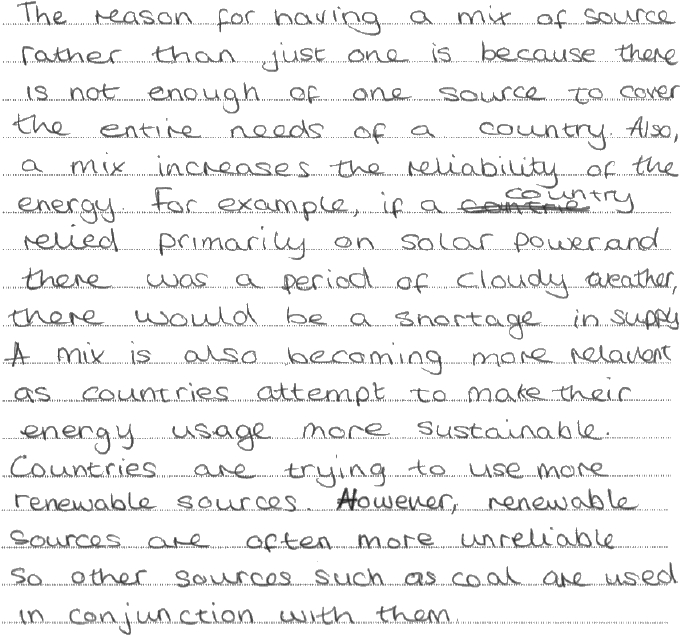 The reason for having a mix of source
rather than just one is because there
is not enough of one source to cover
the entire needs of a country. Also,
a mix increases the reliability of the
energy. For example, if a country
relied primarily on solar power and
there was a period of cloudy weather,
there would be a shortage in supply
A mix is also becoming more relavent
as countries attempt to make their
energy usage more sustainable.
Countries are trying to use more
renewable sources. However, renewable
sources are often more unreliable
so other sources such as coal are used
in conjunction with them.